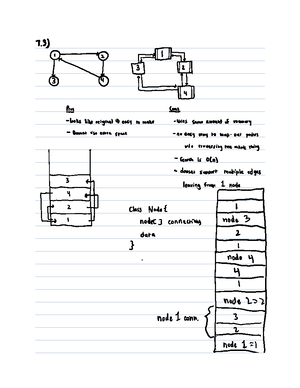 7.3)
1
2
3
4
1
3
2
4
Pro
Cons
- looks like original & easy to make
- Doesnt use extra space
- Uses same amount of memory
- no easy way to swap out points
w/o traversing the whole thing
- Search is O(n)
- doesnt support multiple edges
leaving from 1 node
3
4
2
1
Class Node {
node[] connecting
data
}
1
node 3
2
1
node 4
4
1
node 2 = 2
3
2
node 1 = 1
node 1 conn.